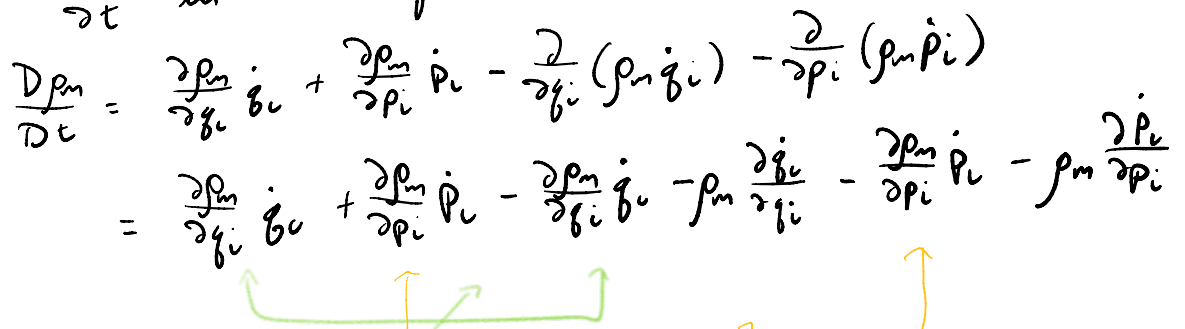 ∂t
Dρₘ/Dt = ∂ρₘ/∂qᵢ q̇ᵢ + ∂ρₘ/∂pᵢ ṗᵢ - ∂/∂qᵢ (ρₘ q̇ᵢ) - ∂/∂pᵢ (ρₘ ṗᵢ)
= ∂ρₘ/∂qᵢ q̇ᵢ + ∂ρₘ/∂pᵢ ṗᵢ - ∂ρₘ/∂qᵢ q̇ᵢ - ρₘ ∂q̇ᵢ/∂qᵢ - ∂ρₘ/∂pᵢ ṗᵢ - ρₘ ∂ṗᵢ/∂pᵢ